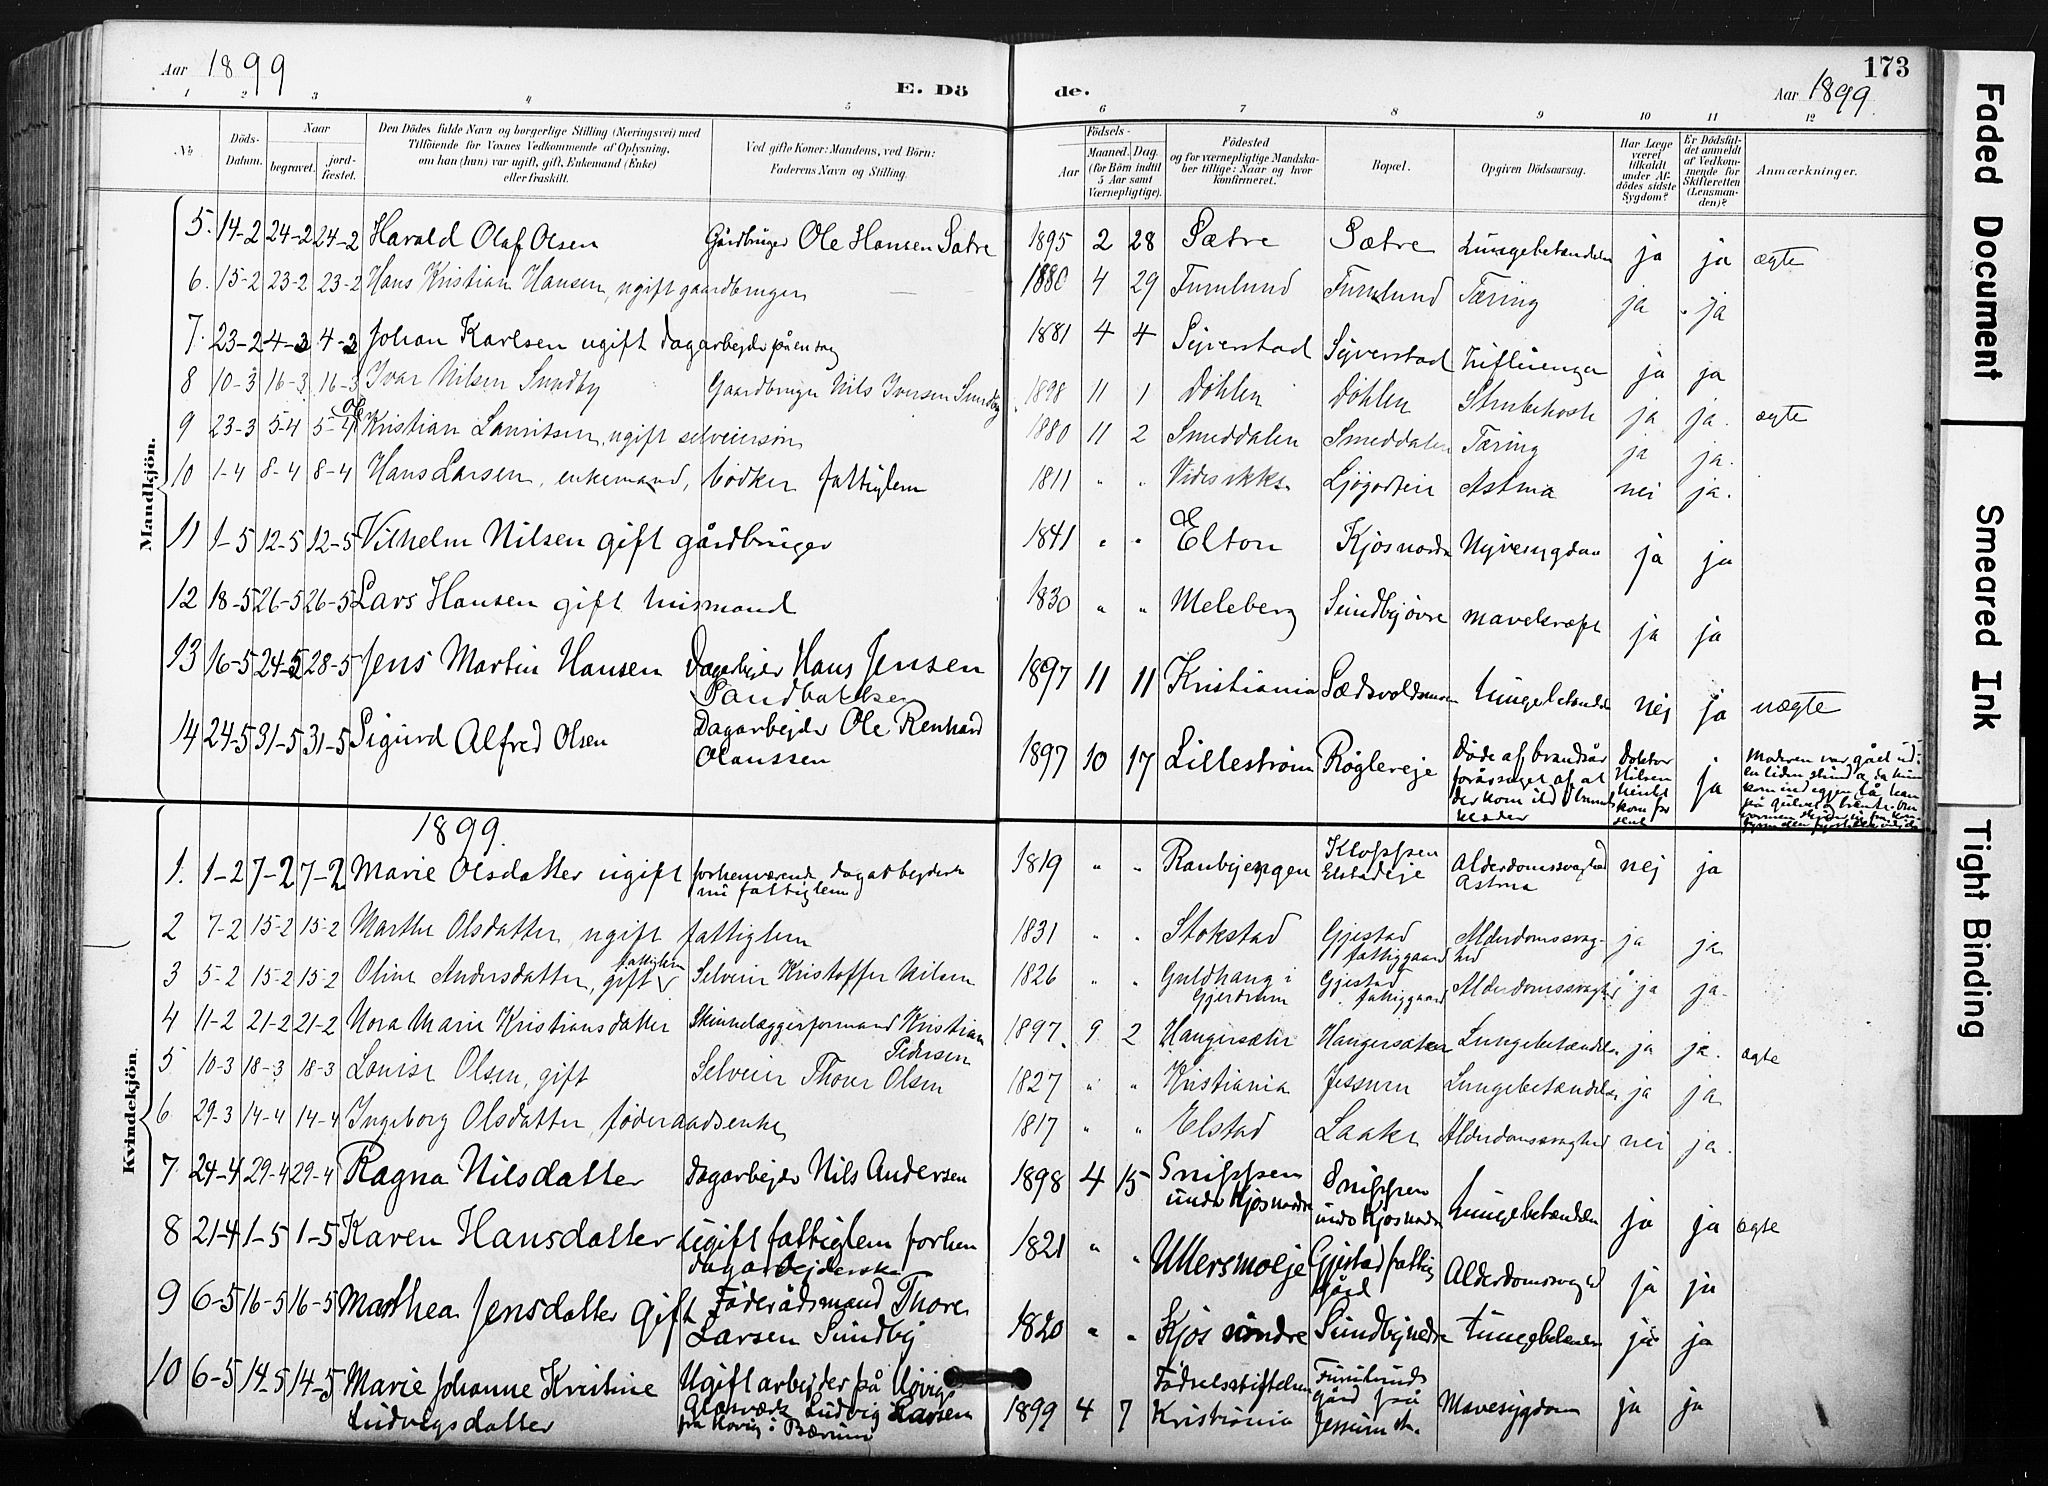 Aar 1899
E. Dö
de.
Aar 1899
173
Faded Document
Smeared Ink
Tight Binding
1 2 3 4 5 6 7 8 9 10 11 12
No
Döds-Datum.
Naar
begravet.
jord-fæstet.
Den Dödes fulde Navn og borgerlige Stilling (Næringsvei) med
Tilföiende for Voxnes Vedkommende af Oplysning,
om han (hun) var ugift, gift, Enkemand (Enke)
eller fraskilt.
Ved gifte Koner: Mandens, ved Börn:
Faderens Navn og Stilling.
Födsels-
Aar
Maaned. Dag.
(for Börn indtil
5 Aar samt
Værnepligtige).
Födested
og for værnepligtige Mandska-
ber tillige: Naar og hvor
konfirmeret.
Bopæl.
Opgiven Dödsaarsag.
Har Læge
været
tilkaldt
under Af-
dödes sidste
Sygdom?
Er Dödsfal-
det anmeldt
af Vedkom-
mende for
Skifteretten
(Lensman-
den)?
Anmærkninger.
Mandkjön.
5. 14-2 24-2 24-2 Harald Olaf Olsen Gårdbruger Ole Hansen Satre 1895 2 28 Sætre Sætre Lungebetændelse ja ja ægte
6. 15-2 23-2 23-2 Hans Kristian Hansen, ugift gaardbruger 1880 4 29 Furulund Furulund Tæring ja ja
7. 23-2 4-3 4-3 Johan Karlsen ugift Dagarbejder på en sag 1881 4 4 Syverstad Syverstad Influenza ja ja
8 10-3 16-3 16-3 Ivar Nilsen Sundby Gaardbruger Nils Iversen Sundby 1898 11 1 Döhlen Döhlen Strubehoste ja ja. ægte
9 23-3 5-4 5-4 Kristian Lauritsen, ugift selveiersön 1880 11 2 Smeddalen Smeddalen Tæring ja ja.
10 1-4 8-4 8-4 Hans Larsen, enkemand, bödker fattiglem 1811 " " Vides ikke Astma nei ja.
11 1-5 12-5 12-5 Vilhelm Nilsen gift gårdbruger 1841 " " Elton Kjos nordre Nyresygdom ja ja
12 18-5 26-5 26-5 Lars Hansen gift husmand 1830 " " Meleberg Sundby övre mavekræft ja ja
13 16-5 24-5 28-5 Jens Martin Hansen Dagarbejder Hans Jensen
Sandbakken 1897 11 11 Kristiania Lungebetændelse nej ja uægte
14 24-5 31-5 31-5 Sigurd Alfred Olsen Dagarbejder Ole Renhard
Olaussen 1897 10 17 Lilleström Röglereje Döde af brandsår
forårsaget af at
der kom ild i barnets
klæder
Doktor
Nilsen
hentet
kom for
sent
ja
Moderen var gået ud
en liden stund og da hun
kom ind igjen lå han
på gulvet og brændte
Kvindekjön.
1899.
1. 1-2 7-2 7-2 Marie Olsdatter ugift forhenværende dagarbejderske
nu fattiglem 1819 " " Raubjengen Kloppen
Elstadeje Alderdomssvaghed
Astma nej ja
2 7-2 15-2 15-2 Marthe Olsdatter, ugift fattiglem 1831 " " Stokstad Gjestad
fattiggaard Alderdomssvag-
hed ja ja
3 5-2 15-2 15-2 Oline Andersdatter, gift fattiglem Selveier Kristoffer Nilsen 1826 " " Guldhaug i
Gjerdrum Gjestad
fattiggaard Alderdomssvaghed ja ja
4 11-2 21-2 21-2 Nora Marie Kristiansdatter Skinnelæggerformand Kristian
Pedersen 1897 9 2 Haugersæter Haugersæter Lungebetændelse ja ja. ægte
5 10-3 18-3 18-3 Louise Olsen, gift Selveier Thore Olsen 1827 " " Kristiania Jessum Lungebetændelse ja ja
6. 29-3 14-4 14-4 Ingeborg Olsdatter, föderaadsenke 1817 " " Elstad Laake Alderdomssvaghed nei ja.
7 24-4 29-4 29-4 Ragna Nilsdatter Dagarbejder Nils Andersen 1898 4 15 Snippen
under Kjos nordre Snippen
under Kjos nordre Lungebetændelse ja ja ægte
8 21-4 1-5 1-5 Karen Hansdatter Ugift fattiglem forhen
dagarbejderske 1821 " " Ullersmoeje Gjestad fattig
gård Alderdomssvaghed ja ja
9 6-5 16-5 16-5 Marthea Jensdatter gift Föderådsmand Thore
Larsen Sundby 1820 " " Kjos söndre Sundby nedre Lungebetændelse ja ja
10 6-5 14-5 14-5 Marie Johanne Kristine
Ludvigsdatter Ugift arbejder på Hövigs
Glasværk Ludvig Larsen
fra Hövig i Bærum 1899 4 7 Födselsstiftelsen
Kristiania Furulunds
gård frå
Jessum st. Mavesygdom ja ja